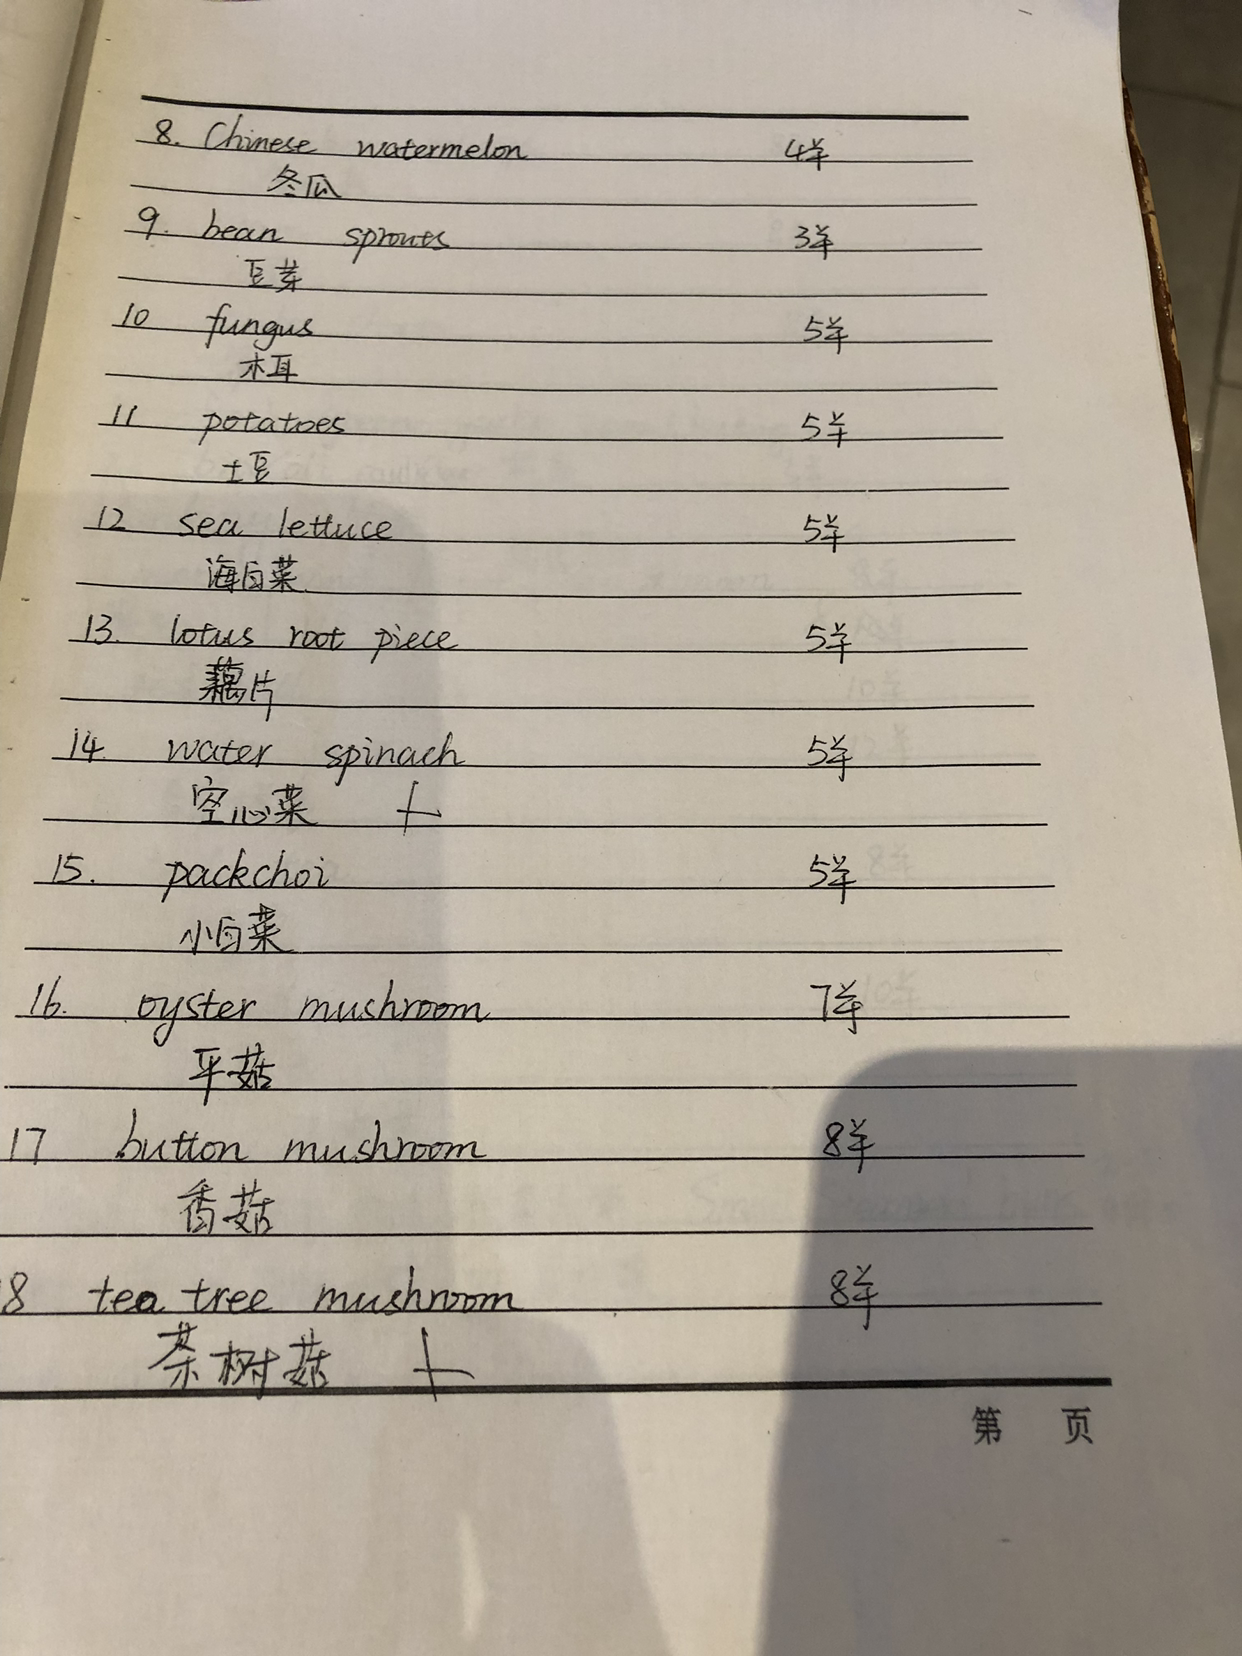 8. Chinese watermelon 4羊
冬瓜
9. bean sprouts 3羊
豆芽
10 fungus 5羊
木耳
11 potatoes 5羊
土豆
12 sea lettuce 5羊
海白菜
13. lotus root piece 5羊
藕片
14. water spinach 5羊
空心菜 十
15. packchoi 5羊
小白菜
16. oyster mushroom 7羊
平菇
17 button mushroom 8羊
香菇
18 tea tree mushroom 8羊
茶树菇 十
第 页